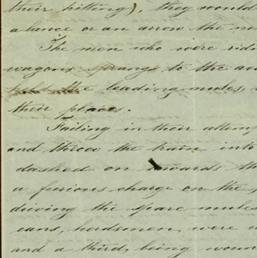 their hitting), they would
a lance or an arrow the
The men who were
wagons sprang to the
the leading mules,
their places.
Failing in their
and throw the train into
dashed on towards
a furious charge on the
driving the spare mules
ears, herdsmen, were
and a third, being